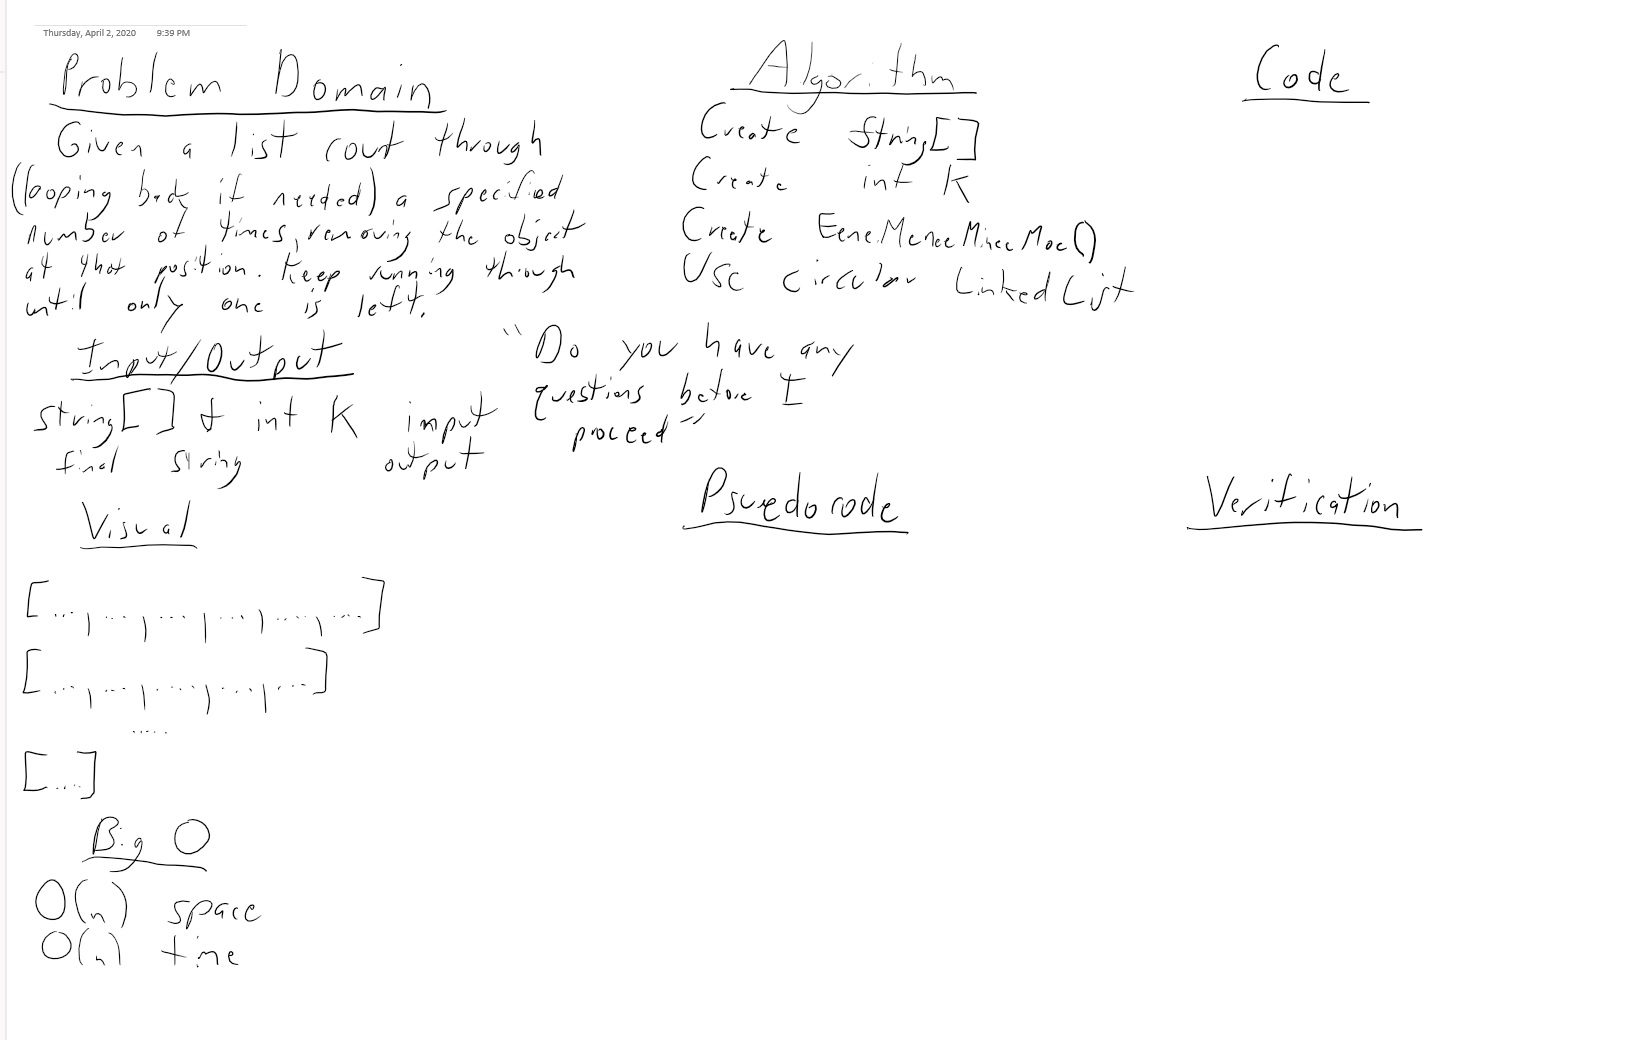 Thursday, April 2, 2020 9:39 PM
Problem Domain
Given a list cout through
(looping back if needed) a specified
number of times, removing the object
at that position. Keep running through
until only one is left.
Input/Output
string[] & int K input
final string output
Visual
[...., ...., ...., ...., ...., ....]
[...., ...., ...., ...., ....]
.....
[....]
Big O
O(n) space
O(n) time
Algorithm
Create String[]
Create int K
Create EeneMeneeMineeMoe()
Use circular Linked List
"Do you have any
questions before I
proceed"
Psuedocode
Code
Verification